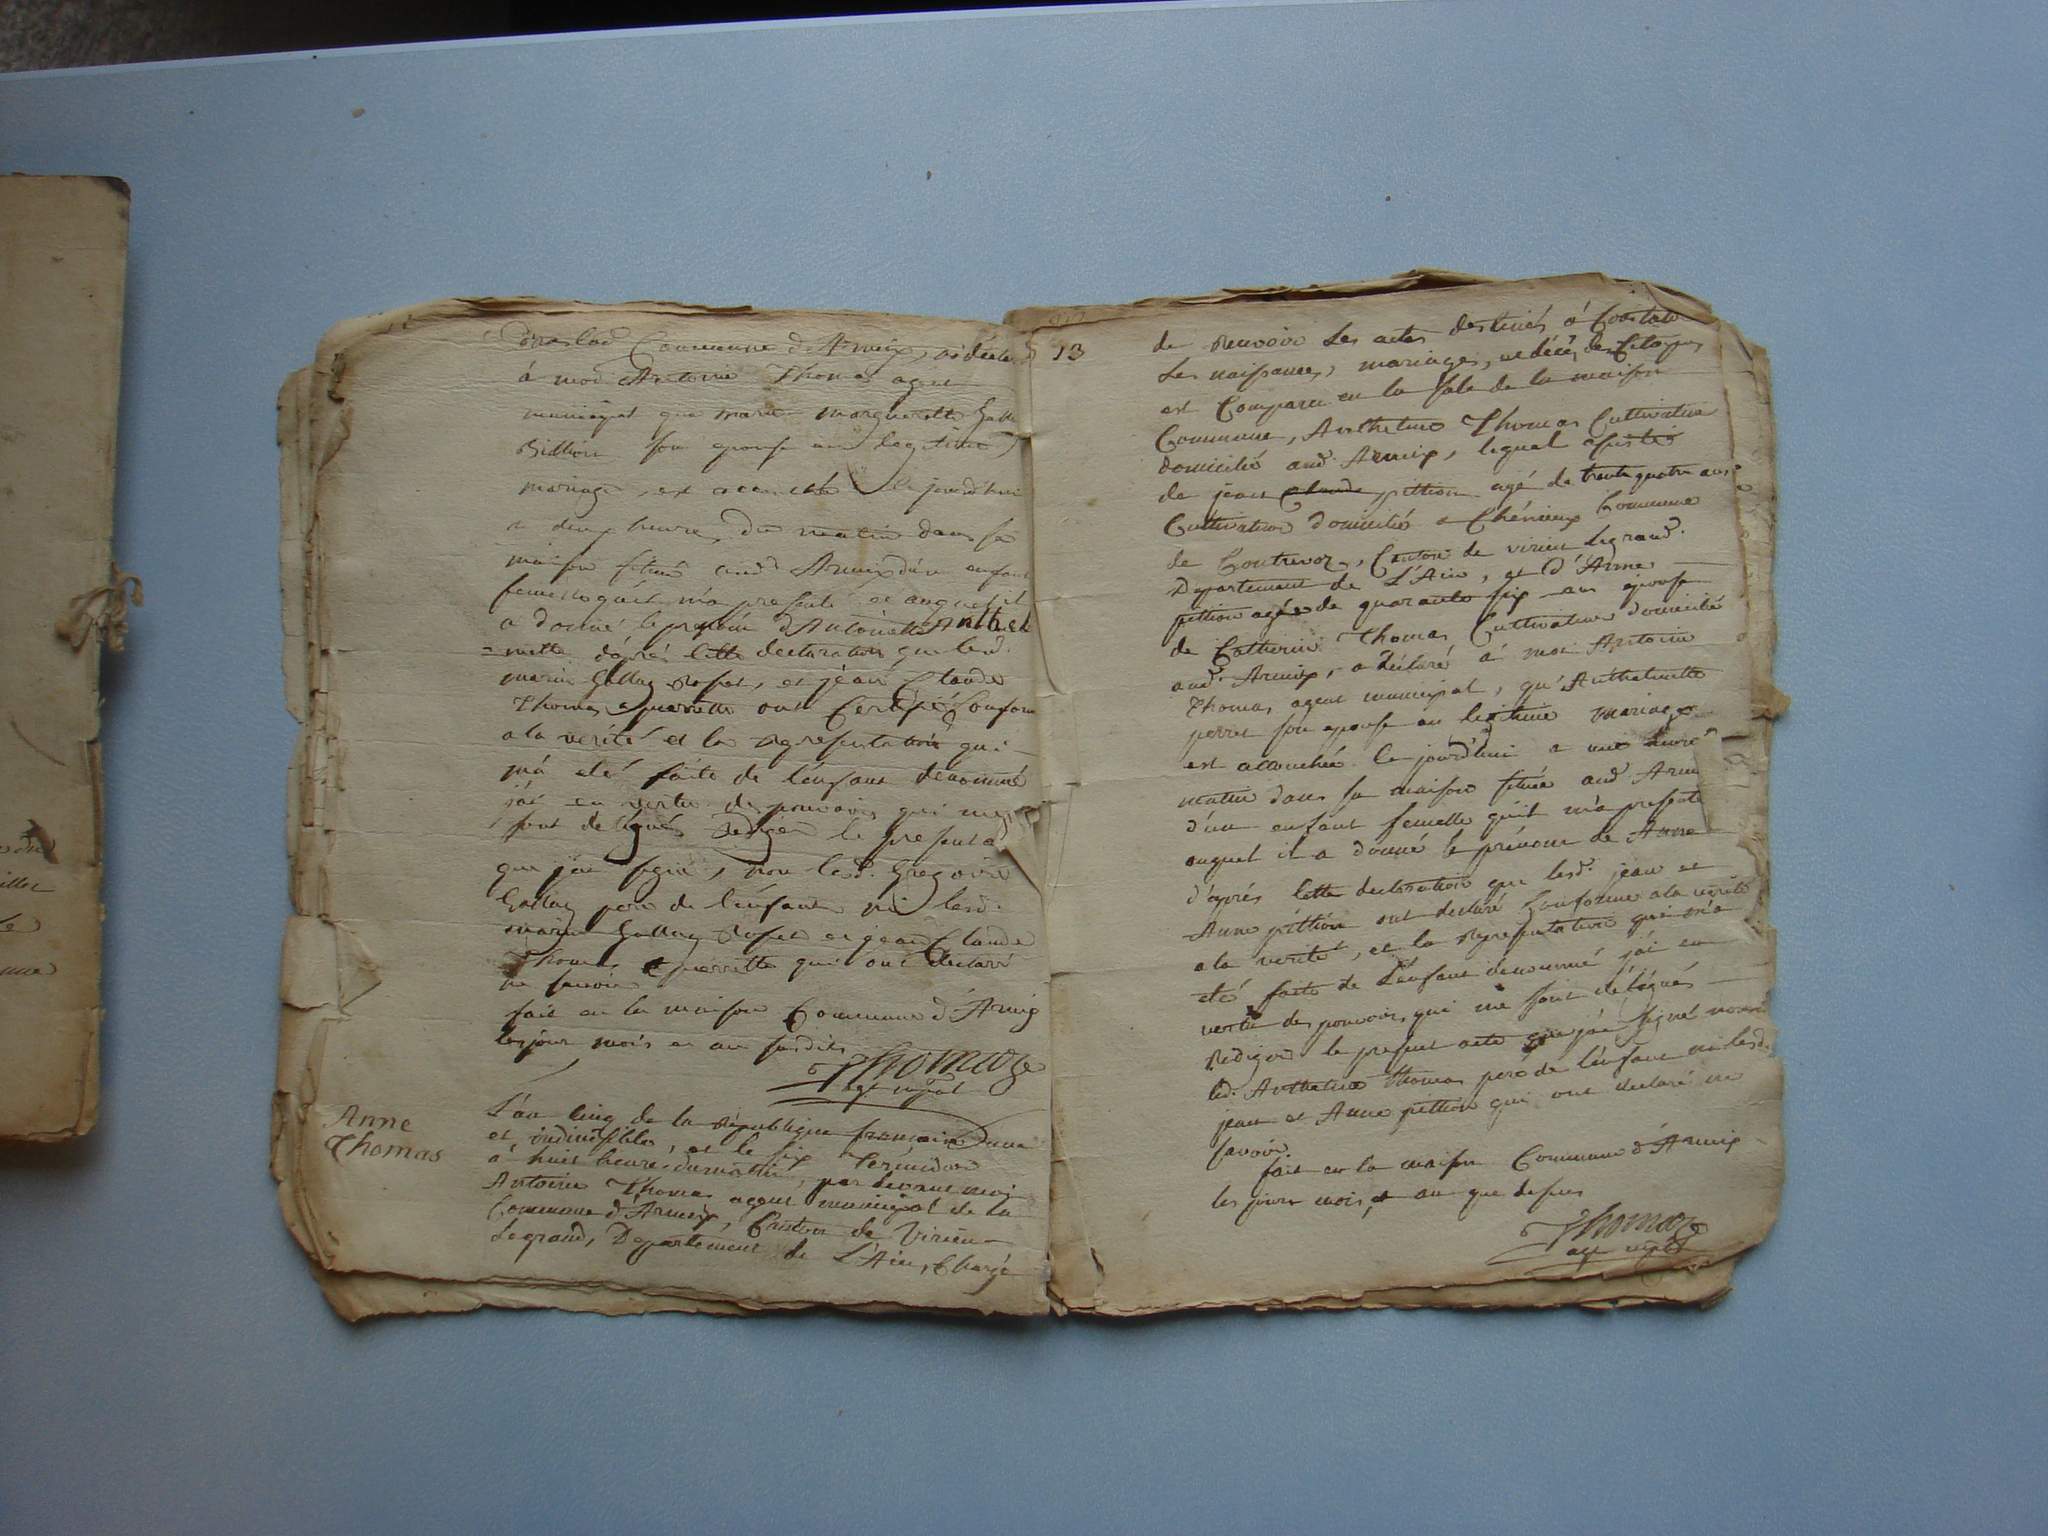 Commune d'Armix, a déclaré
à moi Antoine Thomas agent
municipal que marie margueritte
Billion son epouse en legitime
mariage, est accouchée le jourd'hui
a deux heure du matin dans sa
maison située aud. Armix d'un enfant
femelle qu'il m'a presenté et auquel il
a donné le prenom d'Antoinette Anthel
=mette d'après cette declaration que lesd.
marin Gallay Rosset, et jean Claude
Thomas a pierrette ont Certifié Conforme
a la verité et la representation qui
m'a eté faite de l'enfant denommé
j'ai en vertu des pouvoirs qui me
sont delégués Rediger le present acte
que j'ai signé, non led. Gregoire
Gallay pere de l'enfant ni lesd.
marin Gallay Rosset et jean Claude
Thomas a pierrette qui ont declaré
ne savoir
fait en la maison Commune d'Armix
les jour mois et an susdits
Thomas
agt mpal
Anne
Thomas
L'an cinq de la République française une
et indivisible, et le six Termidor
à huit heure du matin, par devant moi
Antoine Thomas agent municipal de la
Commune d'Armix, Canton de Virieu
Legrand, Departement de L'Ain, Chargé
13
de recevoir les actes destinés à Constater
les naissances, mariages, et décès des Citoyens
est Comparu en la sale de la maison
Commune, Anthelme Thomas Cultivateur
domicilié aud. Armix, lequel assisté
de jean Claude pittion agé de trente quatre ans
Cultivateur domicilié a Chérieux Commune
de Contrevoz, Canton de virieu legrand.
Departement de L'Ain, et d'Anne
pittion agée de quarante six ans epouse
de Catherin Thomas Cultivateur domicilié
aud. Armix, a declaré à moi Antoine
Thomas agent municipal, qu'Anthelmette
perret son epouse en legitime mariage
est accouchée le jourd'hui a une heure
matin dans sa maison située aud. Armix
d'un enfant femelle qu'il m'a presenté
auquel il a donné le prénom de Anne
d'après cette declaration que lesd. jean et
Anne pittion ont declaré Conforme a la verité
a la verité, et la representation qui m'a
eté faite de L'enfant denommé j'ai en
vertu des pouvoirs qui me sont délégués
Rediger le present acte que j'ai signé non
led. Anthelme Thomas pere de l'enfant ni lesd.
jean et Anne pittion qui ont declaré ne
savoir
fait en la maison Commune d'Armix
les jours mois et an que dessus
Thomas
agt mpal